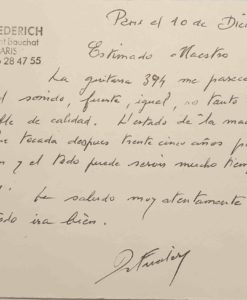 EDERICH
nt Gauchat
ARIS
28 47 55
Paris el 10 de Dici
Estimado Maestro
La guitarra 394 me parece
el sonido, fuerte, igual, no tanto
ble de calidad. L'estado de la ma
tocada despues trente cinco años
y el todo puede servir mucho tiem
Le saludo muy atentamente
do ira bien.